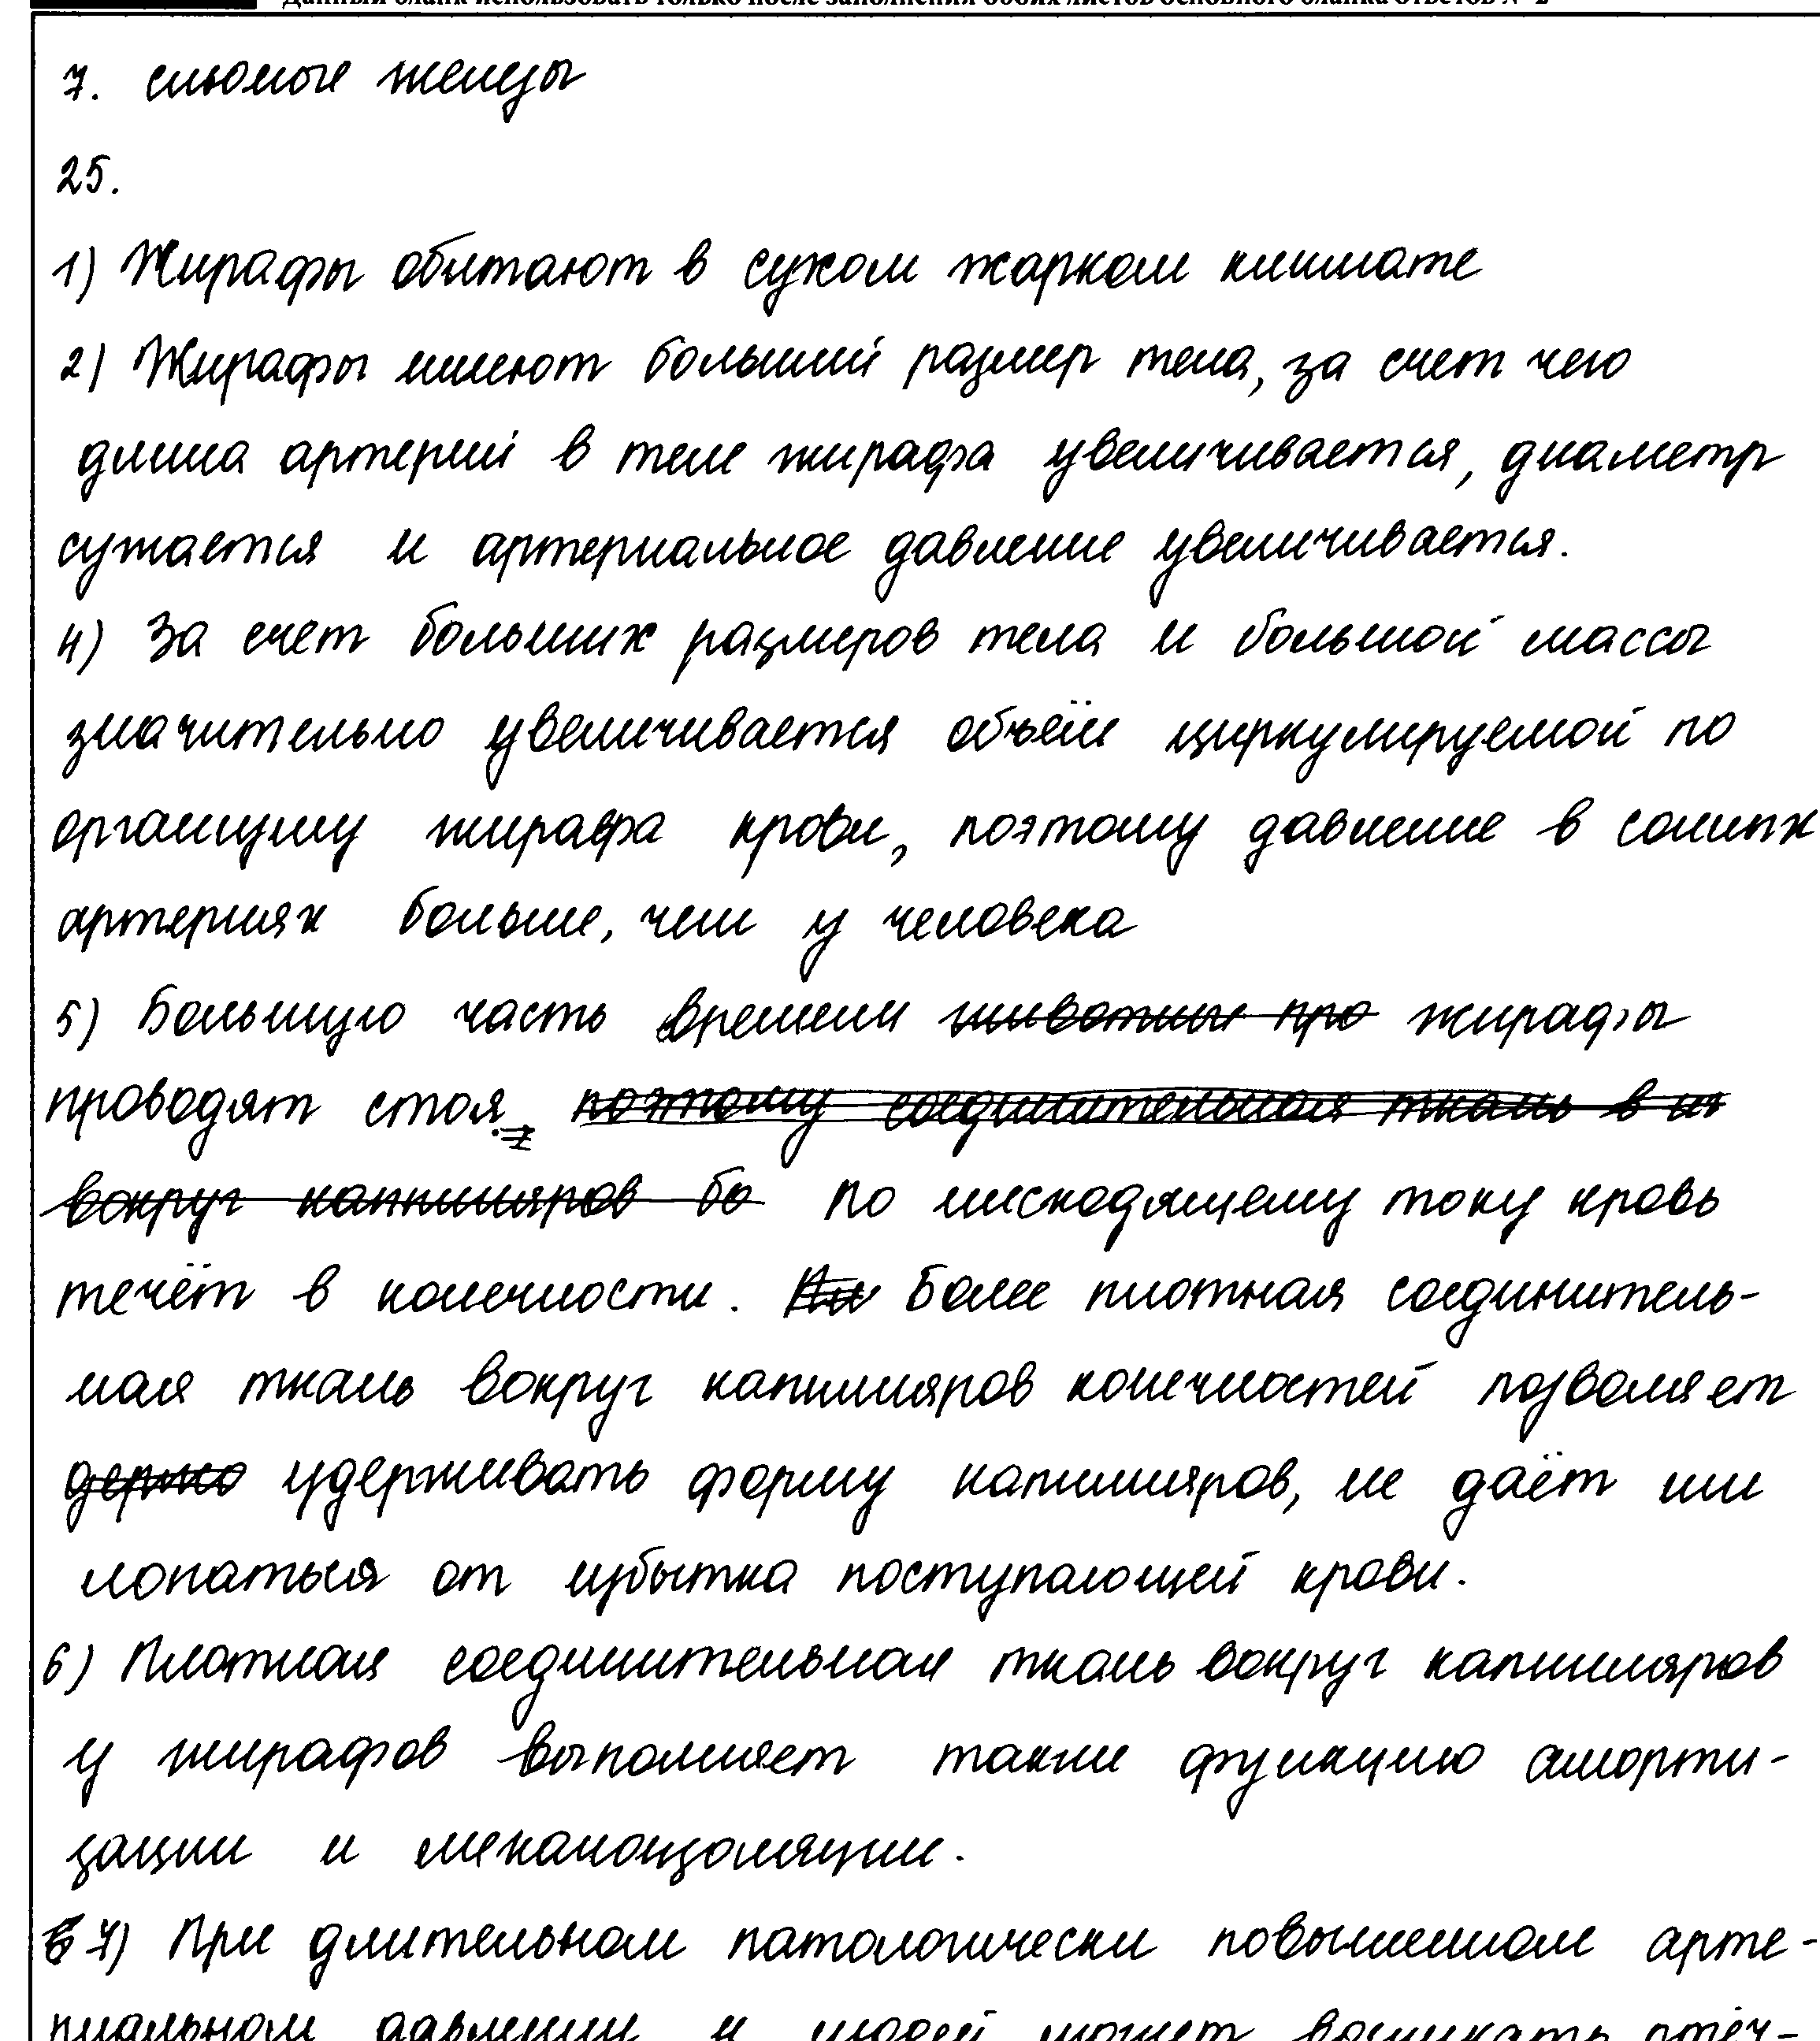 Данный бланк использовать только после заполнения обоих листов основного бланка ответов № 2
7. слюнные железы
25.
1) Жирафы обитают в сухом жарком климате
2) Жирафы имеют больший размер тела, за счет чего
длина артерий в теле жирафа увеличивается, диаметр
сужается и артериальное давление увеличивается.
4) За счет больших размеров тела и большой массы
значительно увеличивается объём циркулируемой по
организму жирафа крови, поэтому давление в
артериях больше, чем у человека
5) Большую часть времени животные про жирафы
проводят стоя. поэтому соединительная ткань в их
вокруг капилляров бо По нисходящему току кровь
течёт в конечности. Более плотная соединитель-
ная ткань вокруг капилляров конечностей позволяет
держа удерживать форму капилляров, не даёт им
лопаться от избытка поступающей крови.
6) Плотная соединительная ткань вокруг капилляров
у жирафов выполняет также функцию аморти-
зации и механоизоляции.
7) При длительном патологически повышенном арте-
риальном давлении у людей может возникать отёч-